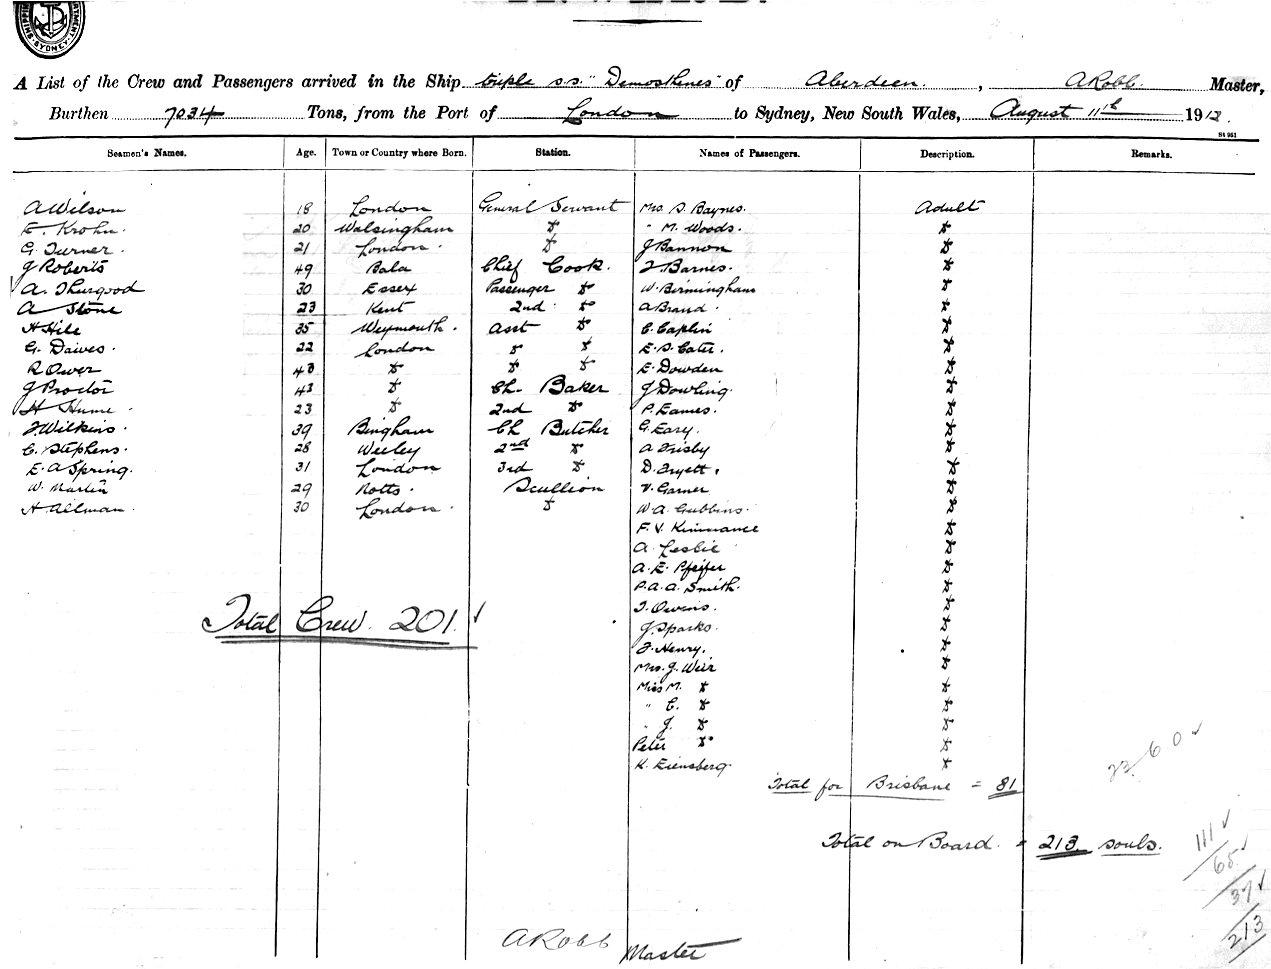 SYDNEY
A List of the Crew and Passengers arrived in the Ship triple s.s. "Demosthenes" of Aberdeen, A Robb Master,
Burthen 7034 Tons, from the Port of London to Sydney, New South Wales, August 11th 1912.
St 951
Seamen's Names. Age. Town or Country where Born. Station. Names of Passengers. Description. Remarks.
A Wilson 18 London General Servant Mrs. S. Baynes. Adult
E. Krohn. 20 Walsingham Do " M. Woods. Do
G. Turner. 21 London. Do J Bannon Do
J Roberts 49 Bala Chief Cook. J Barnes. Do
A. Thurgood 30 Essex Passenger Do W. Birmingham Do
A Stone 23 Kent 2nd Do A Brand. Do
H Hile 35 Weymouth. Asst Do C. Caplin Do
G. Dawes. 22 London Do Do E. S. Cater. Do
R Ower 40 Do Do Do E. Dowden Do
J Proctor 43 Do Ch. Baker J Dowling. Do
H Hume. 23 Do 2nd Do P. Eames. Do
J. Wilkins. 39 Bingham Ch Butcher G. Easy. Do
C. Stephens. 28 Weeley 2nd Do A Frisby Do
E. A Spring. 31 London 3rd Do D. Fryett. Do
W. Martin 29 Notts. Scullion V. Garner Do
H. Allman. 30 London. Do W. A. Gubbins. Do
F. V. Kinnance Do
A. Leslie Do
A. E. Pfeifer Do
P. A. A. Smith. Do
J. Owens. Do
Total Crew. 201.
J. Sparks. Do
J. Henry. Do
Mrs. J. Weir Do
Miss M. Do Do
" C. Do Do
" J. Do Do
Peter Do Do
K. Eiensberg. Do
60
Total for Brisbane = 81
Total on Board. = 213 souls.
111
65
37
213
A Robb Master